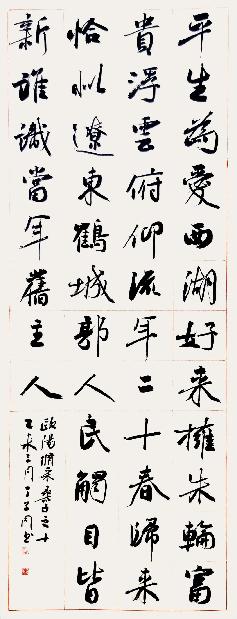 平生為愛西湖好來擁朱輪富
貴浮雲俯仰流年二十春歸來
恰似遼東鶴城郭人民觸目皆
新誰識當年舊主人
歐陽脩采桑子之十